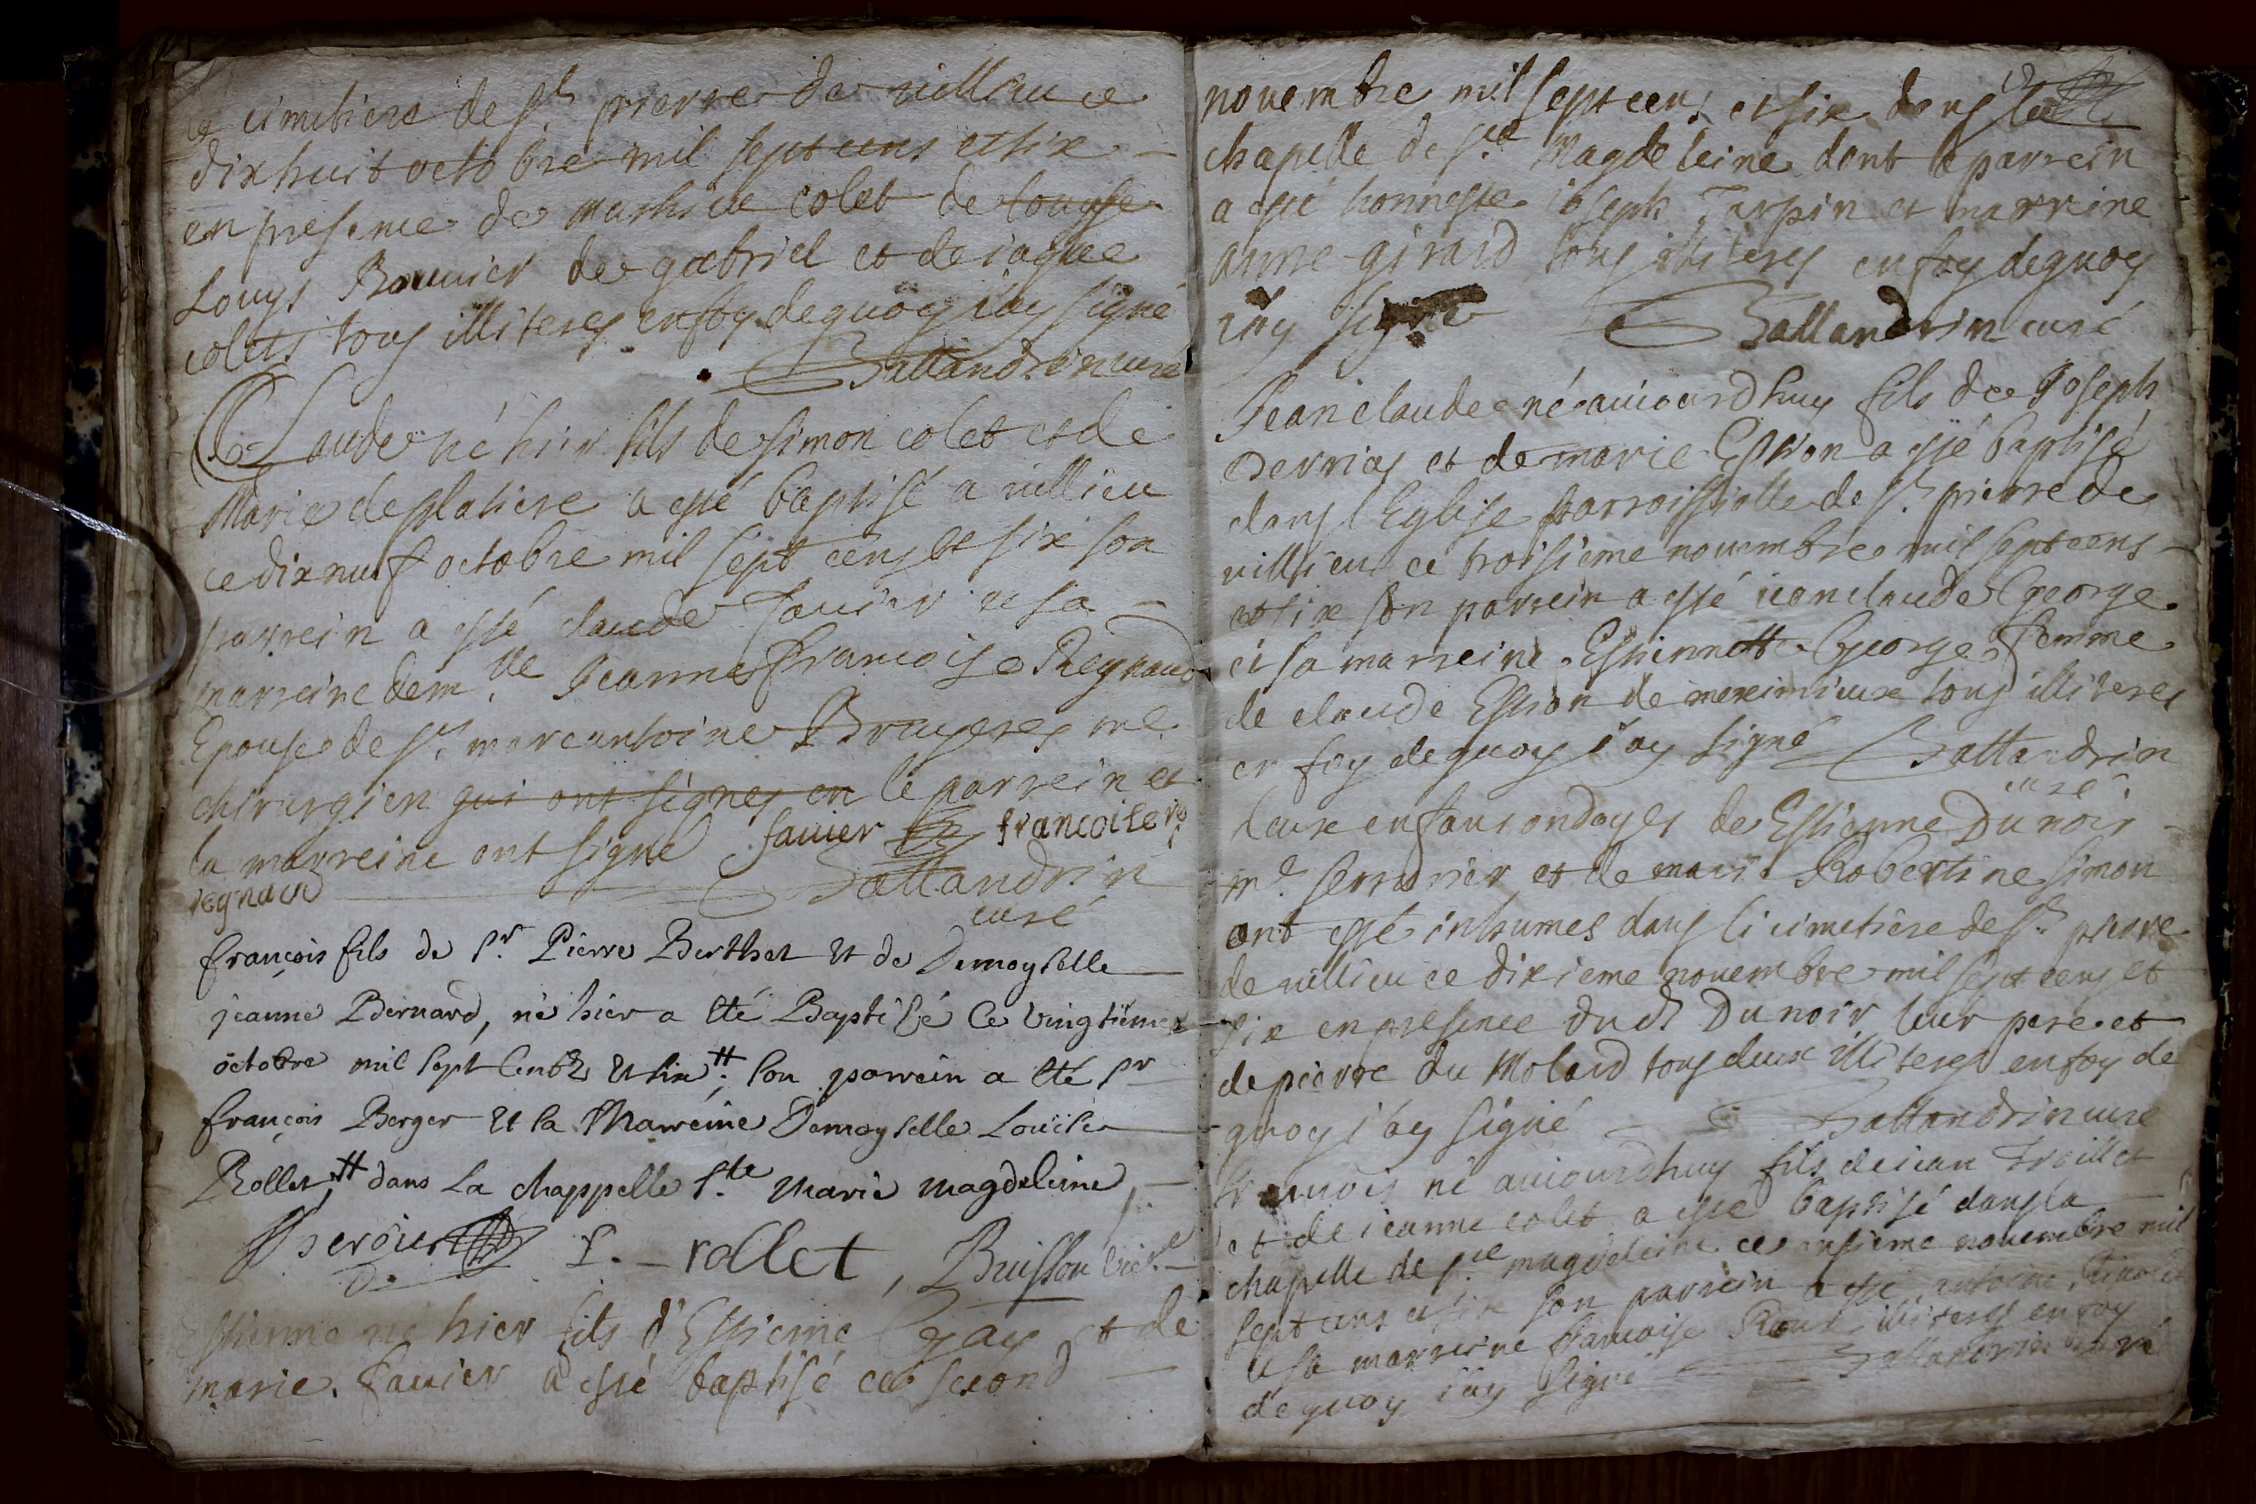 le cimetiere de st pierre de villieu ce
dixhuit octobre mil sept cens et six
en presence de mathieu colet de
Louys Bouvier de gabriel et de iaque
colets tous illiteres en foy de quoy i'ay signé
Ballandrin curé
Claude né hier fils de simon colet et de
Marie de platiere a esté baptisé a villieu
ce dixneuf octobre mil sept cens et six son
parrein a esté claude favier et sa
marreine dem.lle Jeanne francoise Regnaud
Epouse de sr. marc antoine Bruyeres me.
chirurgien qui ont signes en le parrein et
la marreine ont signé favier francoise
regnaud Ballandrin
curé
françois fils de Sr. Pierre Berthet et de Demoyselle
jeanne Bernard, né hier a été Baptisé Ce vingtieme
octobre mil sept Cents et six ; son parrein a été Sr
françois Berger et la Mareine Demoyselle Louïse
Rollet dans La chappelle Ste. Marie magdeleine
L. rollet, Buisson vic.re
Estienne né hier fils d'Estiene Gay et de
marie favier a esté baptisé ce second
novembre mil sept cens et six dans la
chapelle de ste Magdeleine dont le parrein
a esté honneste ioseph Tarpin et marreine
anne girard tous illiteres en foy de quoy
i'ay signé Ballandrin curé
Jean claude né auiourdhuy fils de Joseph
Derrias et de marie Estion a esté baptisé
dans l'Eglise parroissialle de st pierre de
villieu ce troisieme novembre mil sept cens
et six son parrein a esté iean claude George
et sa marreine Estiennette George femme
de claude Estion de meximieux tous illiteres
en foy de quoy i'ay signé Ballandrin
curé
deux enfans ondoyes de Estienne Dunoir
me. serrurier et de marie Robertine simon
ont esté inhumes dans le cimetiere de st pierre
de villieu ce dixieme novembre mil sept cens et
six en presence dudt Dunoir leur pere et
de pierre du Molard tous deux illiteres en foy de
quoy i'ay signé Ballandrin curé
francois né auiourdhuy fils de iean Troillet
et de ieanne colet a esté baptisé dans la
chapelle de ste magdeleine ce onsieme novembre mil
sept cens et six son parrein a esté antoine
et sa marreine francoise Roux illiteres en foy
de quoy i'ay signé Ballandrin curé